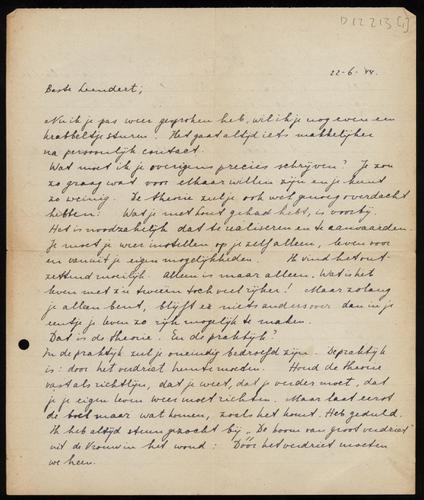 D12213[1]
22-6-'44.
Beste Leendert;
Nu ik je pas weer gesproken heb, wil ik je nog even een
krabbeltje sturen. Het gaat altijd iets makkelijker
na persoonlijk contact.
Wat moet ik je overigens precies schrijven? Je zou
zo graag wat voor elkaar willen zijn en je kunt
zo weinig. De theorie zul je ook wel genoeg overdacht
hebben! Wat je met hout gehad hebt, is voorbij.
Het is noodzakelijk dat te realiseren en te aanvaarden.
Je moet je weer instellen op je zelf alleen, leven voor
en vanuit je eigen mogelijkheden. Ik vind het ont-
zettend moeilijk. Alleen is maar alleen. Wat is het
leven met z'n tweeën toch veel rijker! Maar zolang
je alleen bent, blijft er niets anders over dan in je
eentje je leven zo rijk mogelijk te maken.
Dat is de theorie. En de praktijk?
In de praktijk zul je oneindig bedroefd zijn. De praktijk
is: door het verdriet heen te moeten. Houd de theorie
vast als richtlijn, dat je weet, dat je verder moet, dat
je je eigen leven weer moet richten. Maar laat eerst
de rest maar wat komen, zoals het komt. Heb geduld.
Ik heb altijd steun gezocht bij "De boom van groot verdriet"
uit de Vrouw in het woud: Dóór het verdriet moeten
we heen.